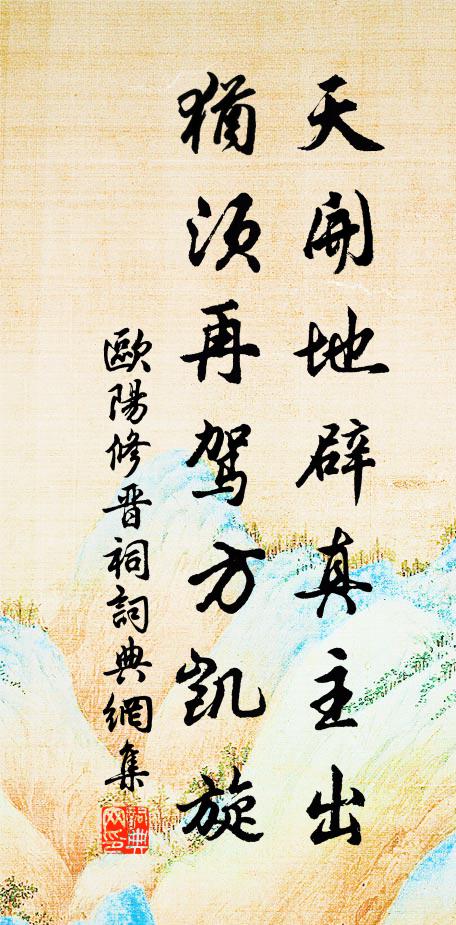 天開地辟真主出
猶須再駕方凱旋
歐陽修晋祠詞典網集
詞典网印